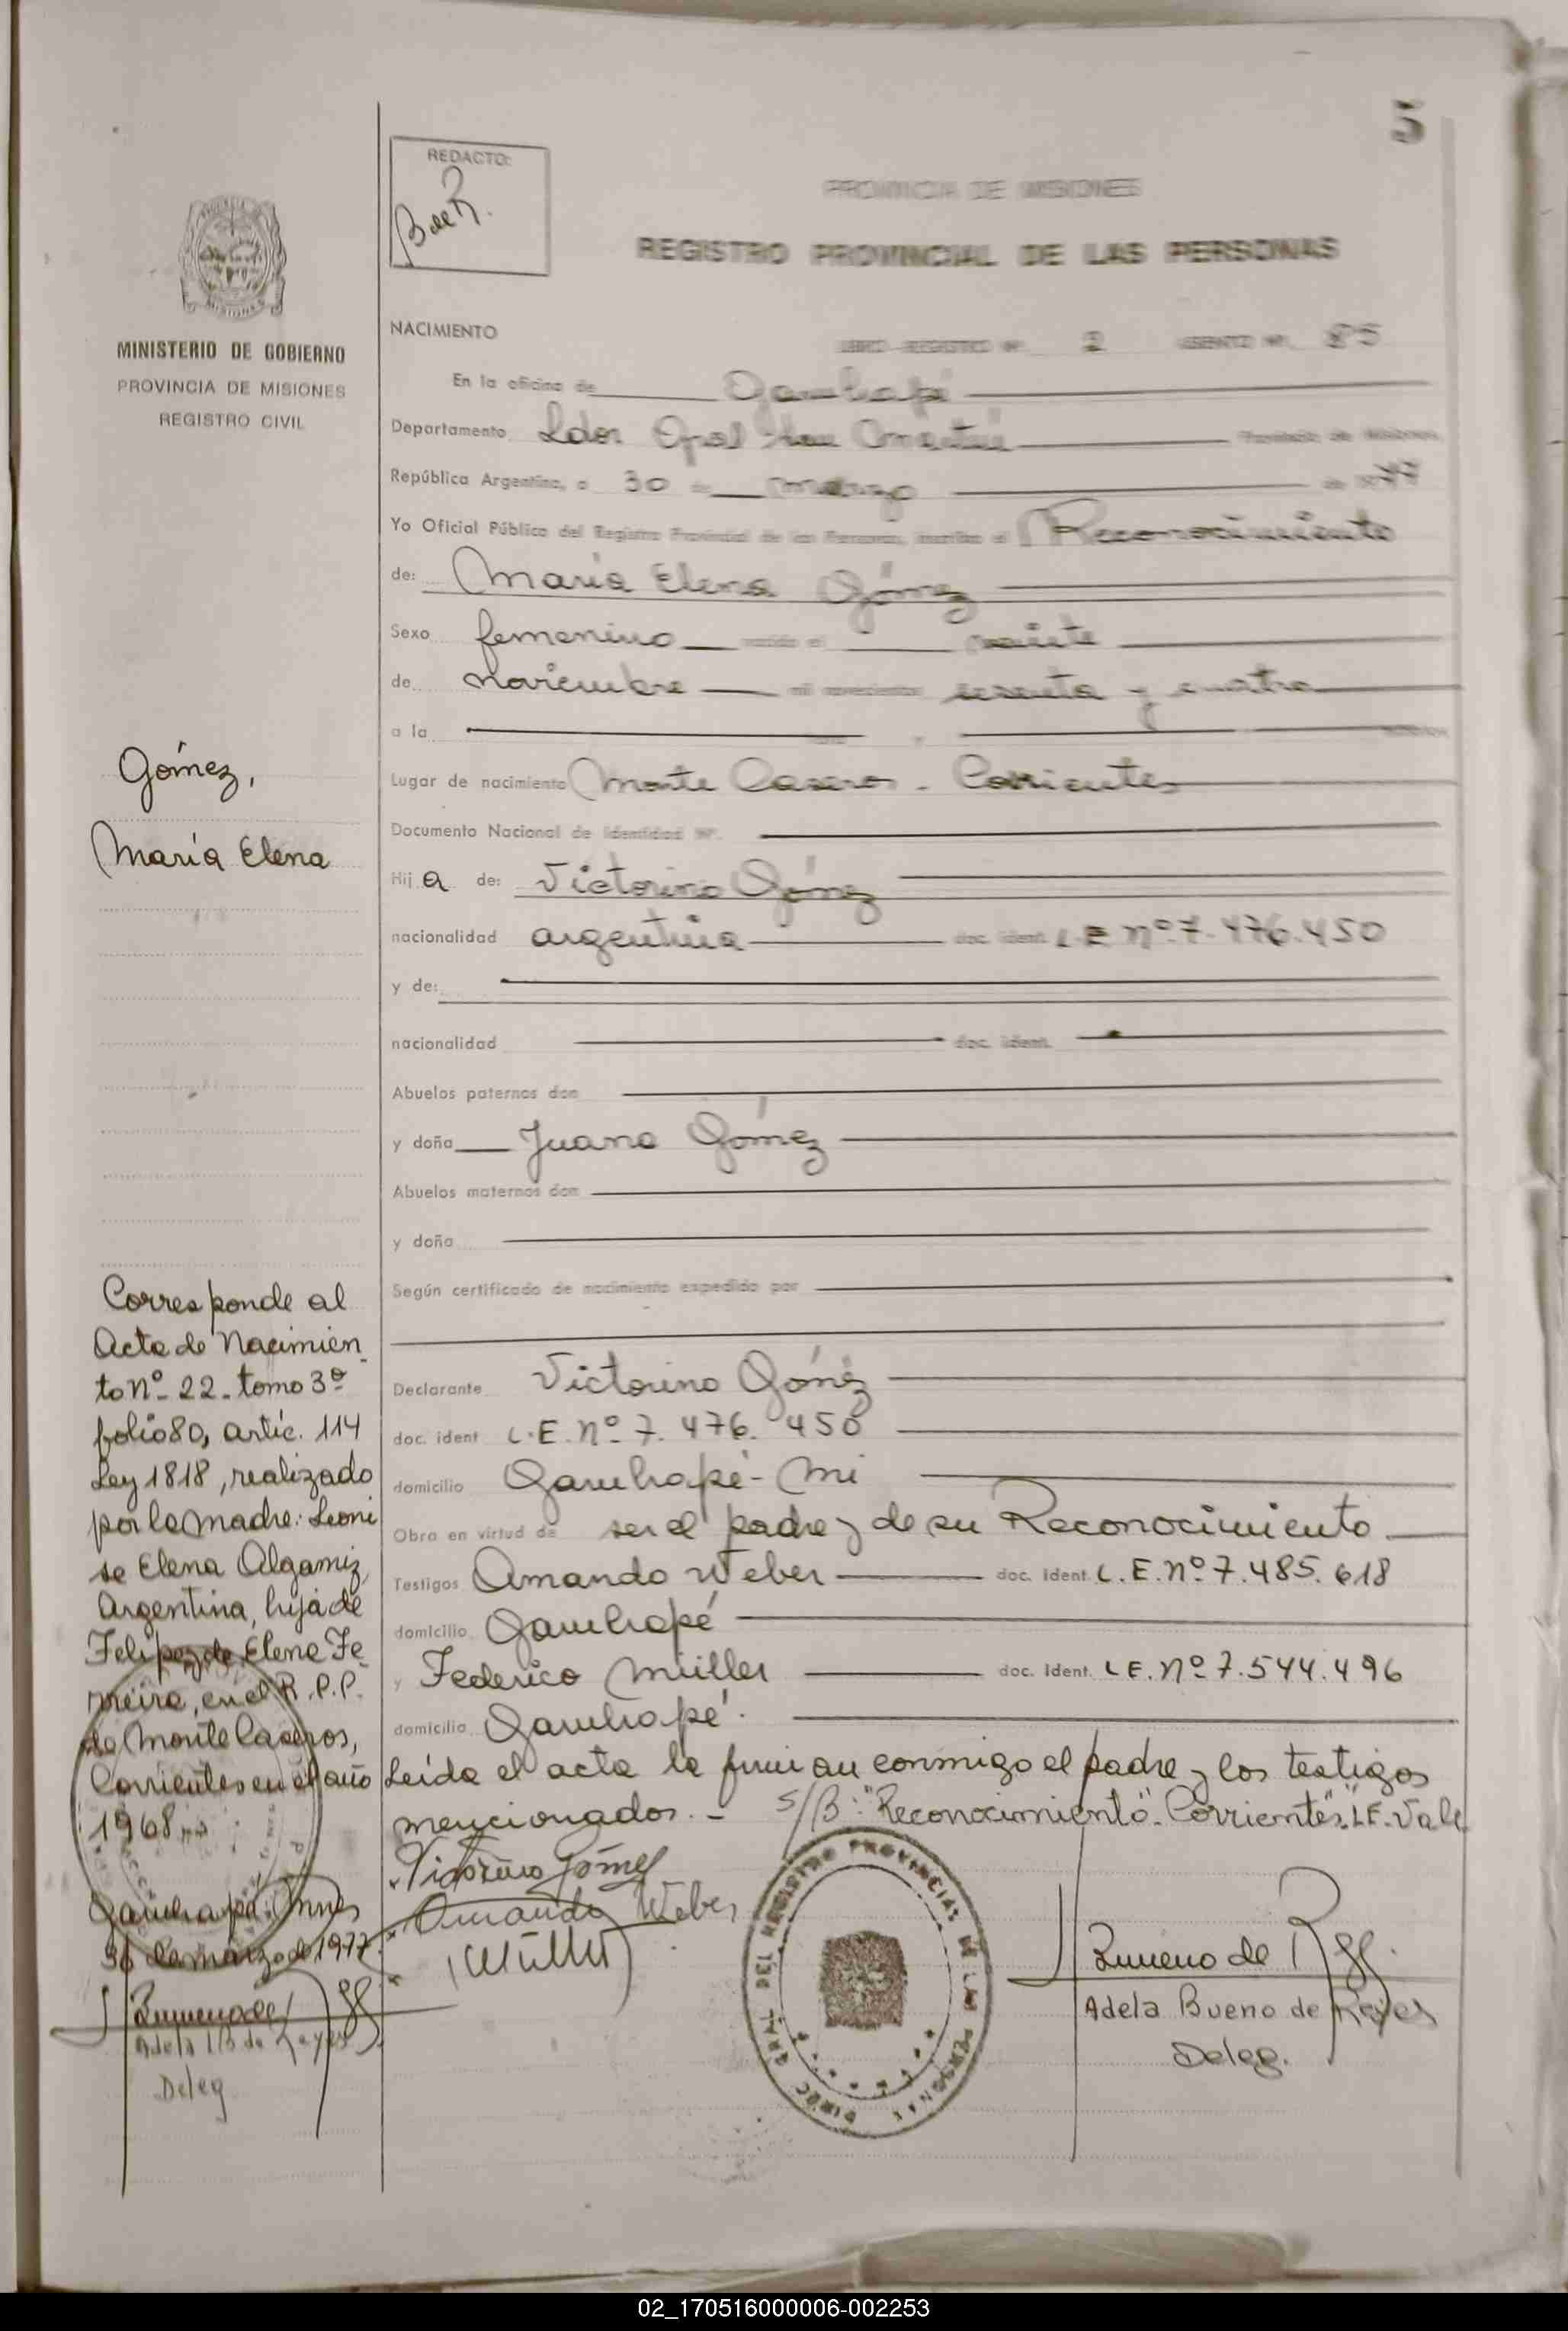 5
REDACTO:
B de R.
PROVINCIA DE MISIONES
REGISTRO PROVINCIAL DE LAS PERSONAS
MINISTERIO DE GOBIERNO
PROVINCIA DE MISIONES
REGISTRO CIVIL
NACIMIENTO
LIBRO - REGISTRO Nº 2 ASIENTO Nº. 85
En la oficina de Garuhapé
Departamento Ldor Gral San Martín Provincia de Misiones,
República Argentina, a 30 de marzo de 1977
Yo Oficial Público del Registro Provincial de las Personas, inscribo el Reconocimiento
de: María Elena Gómez
Sexo femenino nacido el veinte
de noviembre mil novecientos sesenta y cuatro
a la
Lugar de nacimiento Monte Caseros - Corrientes
Documento Nacional de Identidad Nº.
Hij a de: Victorino Gómez
nacionalidad argentina doc. ident. L.E Nº 7.476.450
y de:
nacionalidad doc. ident.
Abuelos paternos don
y doña Juana Gómez
Abuelos maternos don
y doña
Según certificado de nacimiento expedido por
Declarante Victorino Gómez
doc. ident L.E. Nº 7.476.450
domicilio Garuhapé - Mi
Obra en virtud de ser el padre y de su Reconocimiento
Testigos Amando Weber doc. ident. L.E. Nº 7.485.618
domicilio Garuhapé
y Federico Müller doc. ident. L E. Nº 7.544.496
domicilio Garuhapé.
Leída el acta la firman conmigo el padre y los testigos
mencionados. - S/B: "Reconocimiento". Corrientes". "L.E. Vale
Victorino Gómez
Amando Weber
Müller
DIREC GRAL DEL REGISTRO PROVINCIAL DE LAS PERSONAS
Adela Bueno de Reyes
Deleg.
Gómez,
María Elena
Corresponde al
Acta de Nacimien_
to Nº 22 - tomo 3º
folio 80, artíc. 114
Ley 1818, realizado
por la madre: Leoni
se Elena Algamiz,
Argentina, hija de
Felipe y de Elena Fe_
rreira, en el R.P.P.
de Monte Caseros,
Corrientes en el año
1968.
Garuhapé, Mnes
30 de marzo de 1977.
Adela B de Reyes
Deleg
02_170516000006-002253